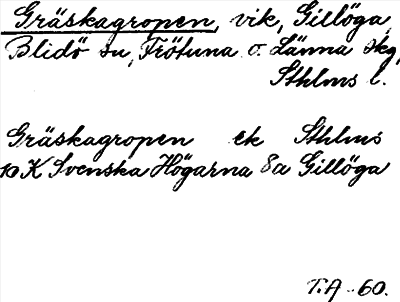 Gräskagropen, vik, Gillöga,
Blidö su, Frötuna o. Länna skg,
Sthlms l.
Gräskagropen ek Sthlms
10 K Svenska Högarna 8a Gillöga
T.A. -60.